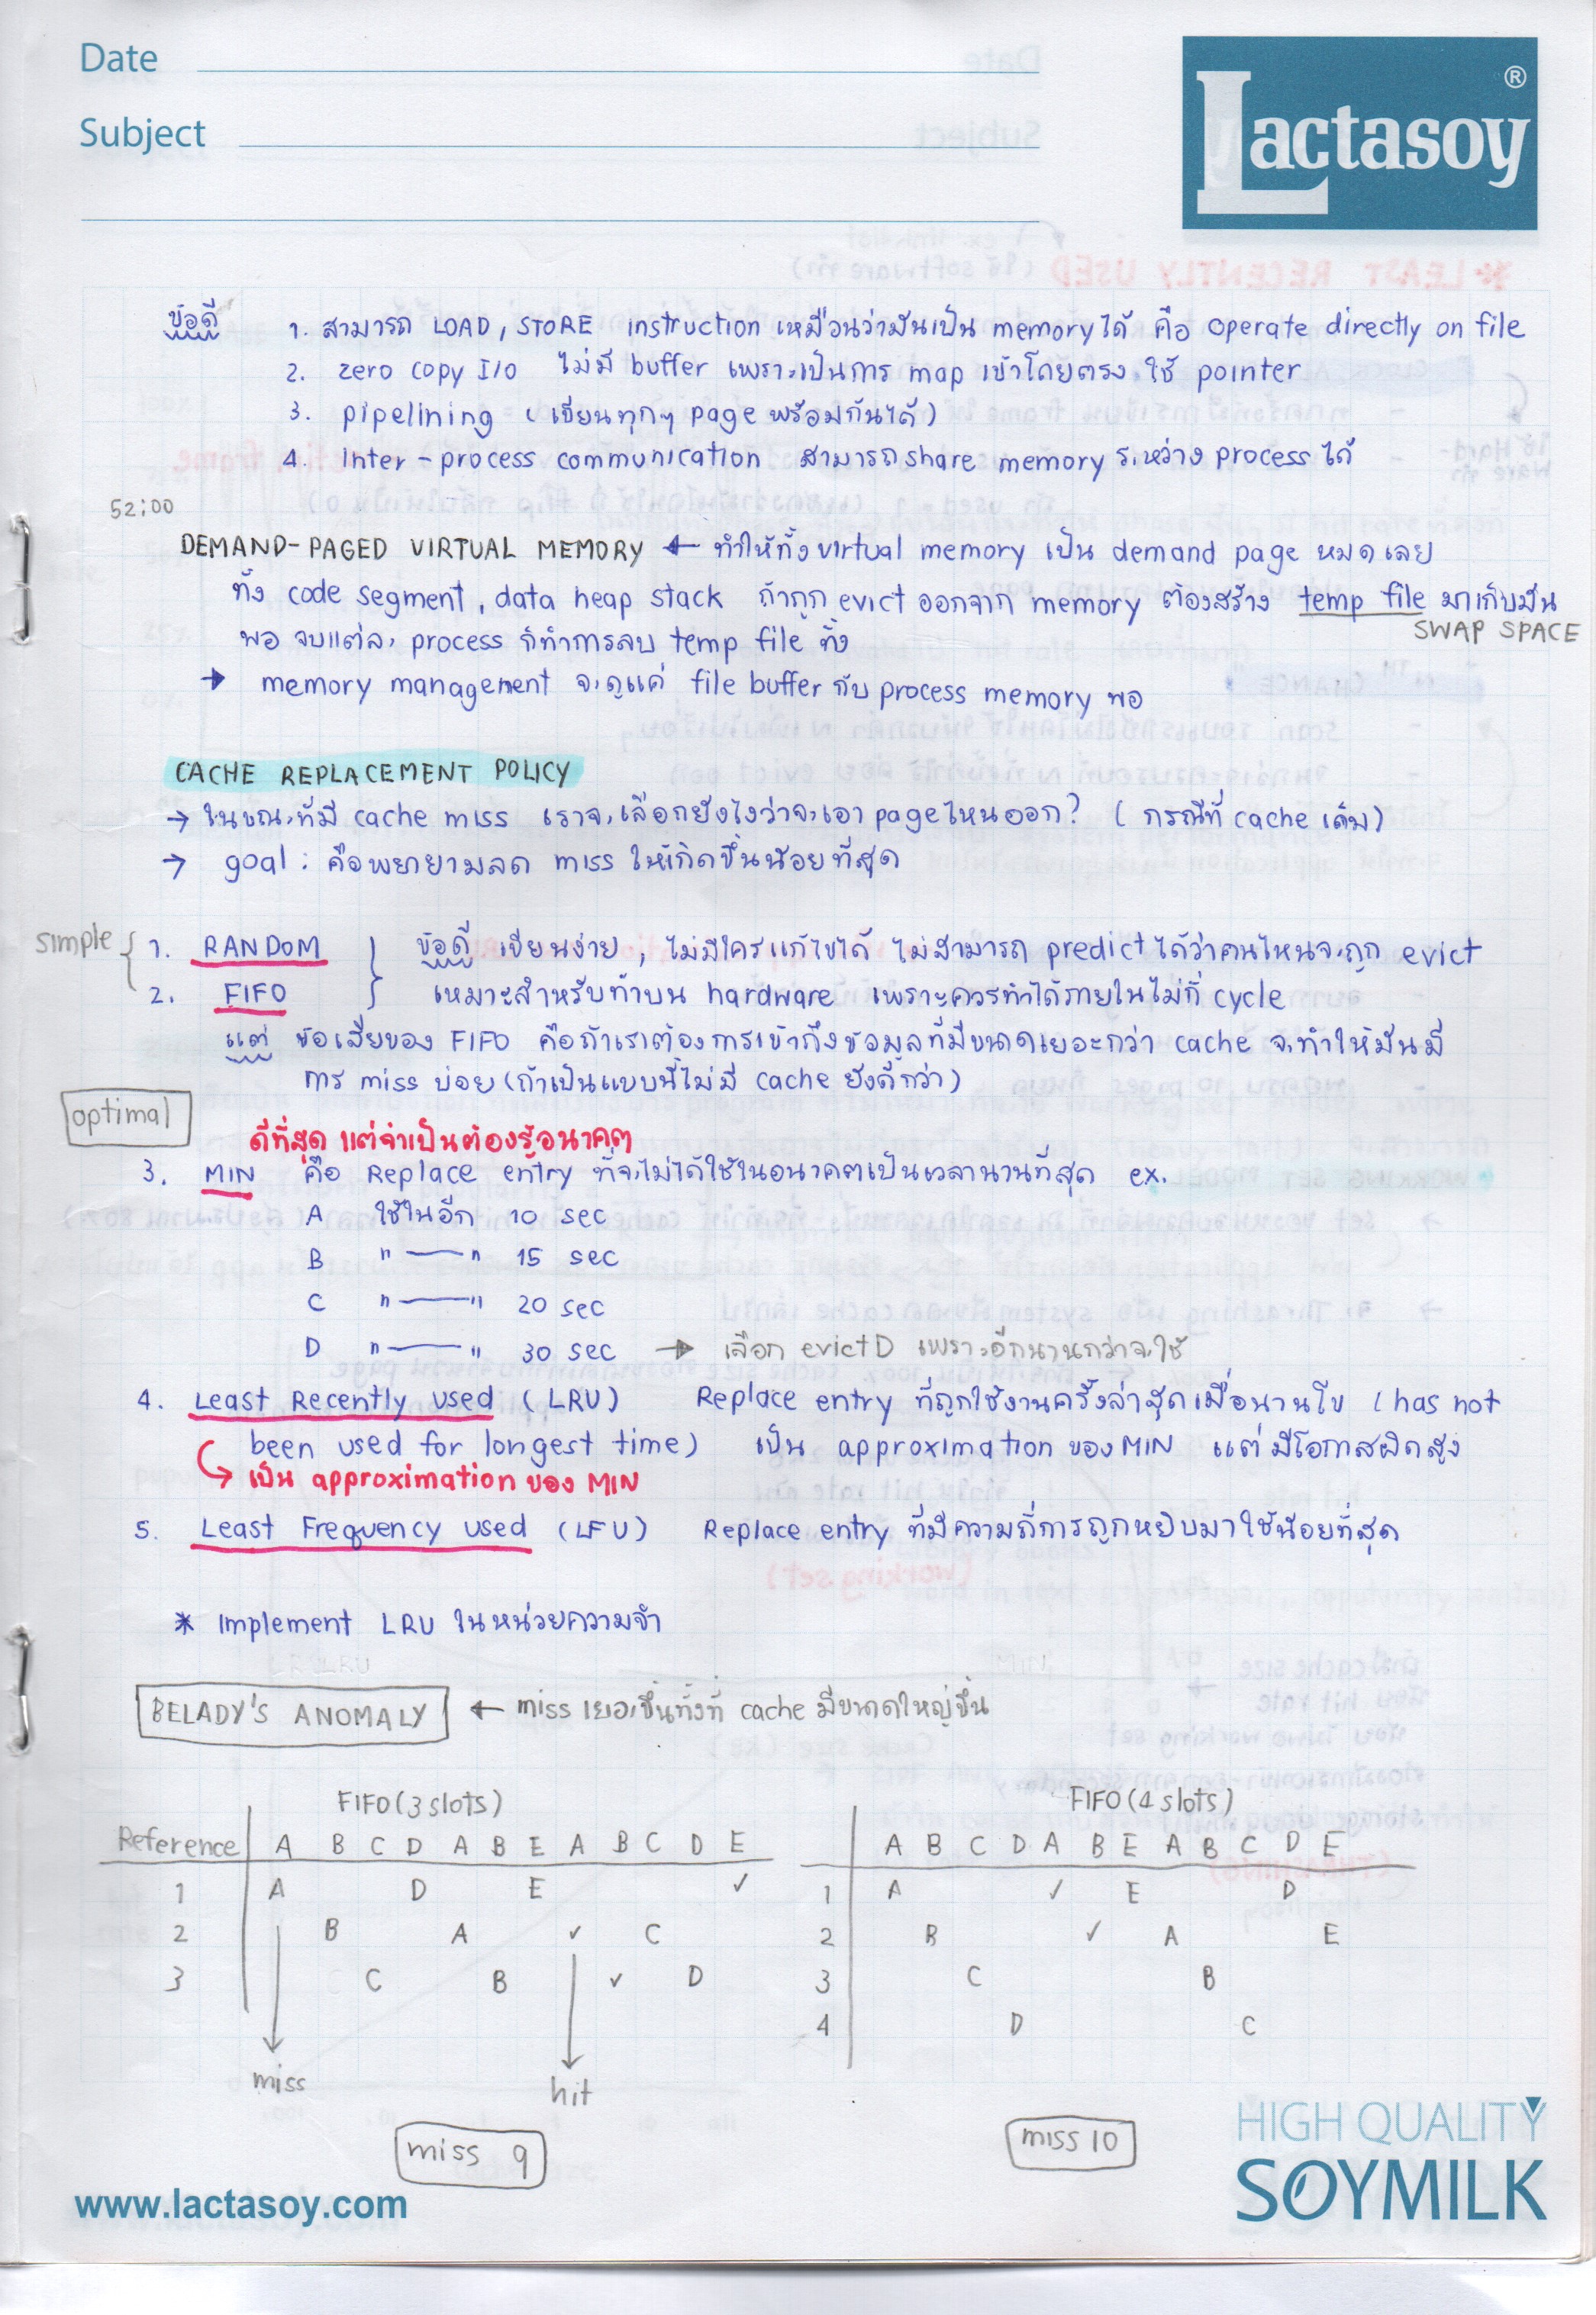 Date
Subject
Lactasoy ®
ข้อดี 1. สามารถ LOAD, STORE instruction เหมือนว่ามันเป็น memory ได้ คือ operate directly on file
2. zero copy I/O ไม่มี buffer เพราะเป็นการ map เข้าโดยตรง ใช้ pointer
3. pipelining (เขียนทุกๆ page พร้อมกันได้)
4. Inter-process communication สามารถ share memory ระหว่าง process ได้
52:00
DEMAND-PAGED VIRTUAL MEMORY ← ทำให้ทั้ง virtual memory เป็น demand page หมดเลย
ทั้ง code segment, data heap stack ถ้าถูก evict ออกจาก memory ต้องสร้าง temp file มาเก็บมัน
SWAP SPACE
พอ จบแต่ละ process ก็ทำการลบ temp file ทิ้ง
→ memory management จะดูแค่ file buffer กับ process memory พอ
CACHE REPLACEMENT POLICY
→ ในขณะที่มี cache miss เราจะเลือกยังไงว่าจะเอา page ไหนออก? (กรณีที่ cache เต็ม)
→ goal : คือพยายามลด miss ให้เกิดขึ้นน้อยที่สุด
simple { 1. RANDOM } ข้อดี เขียนง่าย, ไม่มีใครแก้ไขได้ ไม่สามารถ predict ได้ว่าคนไหนจะถูก evict
2. FIFO } เหมาะสำหรับทำบน hardware เพราะควรทำได้ภายในไม่กี่ cycle
แต่ ข้อเสียของ FIFO คือถ้าเราต้องการเข้าถึงข้อมูลที่มีขนาดเยอะกว่า cache จะทำให้มันมี
การ miss บ่อย (ถ้าเป็นแบบนี้ไม่มี cache ยังดีกว่า)
optimal
ดีที่สุด แต่จำเป็นต้องรู้อนาคต
3. MIN คือ Replace entry ที่จะไม่ได้ใช้ในอนาคตเป็นเวลานานที่สุด ex.
A ใช้ในอีก 10 sec
B " — " 15 sec
C " — " 20 sec
D " — " 30 sec → เลือก evict D เพราะอีกนานกว่าจะใช้
4. Least Recently used (LRU) Replace entry ที่ถูกใช้งานครั้งล่าสุดเมื่อนานโข (has not
been used for longest time) เป็น approximation ของ MIN แต่ มีโอกาสผิดสูง
เป็น approximation ของ MIN
5. Least Frequency used (LFU) Replace entry ที่มีความถี่การถูกหยิบมาใช้น้อยที่สุด
* Implement LRU ในหน่วยความจำ
BELADY'S ANOMALY ← miss เยอะขึ้นทั้งที่ cache มีขนาดใหญ่ขึ้น
FIFO (3 slots) FIFO (4 slots)
Reference A B C D A B E A B C D E A B C D A B E A B C D E
1 A D E ✓ 1 A ✓ E D
2 B A ✓ C 2 B ✓ A E
3 C B ✓ D 3 C B
4 D C
miss hit
miss 9 miss 10
HIGH QUALITY
SOYMILK
www.lactasoy.com